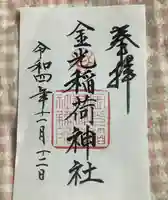 奉拝
金光稲荷神社
令和四年十一月十二日